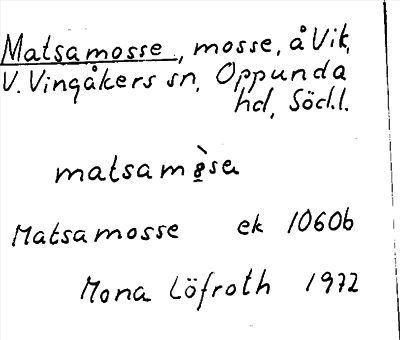 Matsamosse, mosse, å Vik,
V. Vingåkers sn, Oppunda
hd, Södl.
matsamòsa
Matsamosse ek 1060b
Mona Löfroth 1972